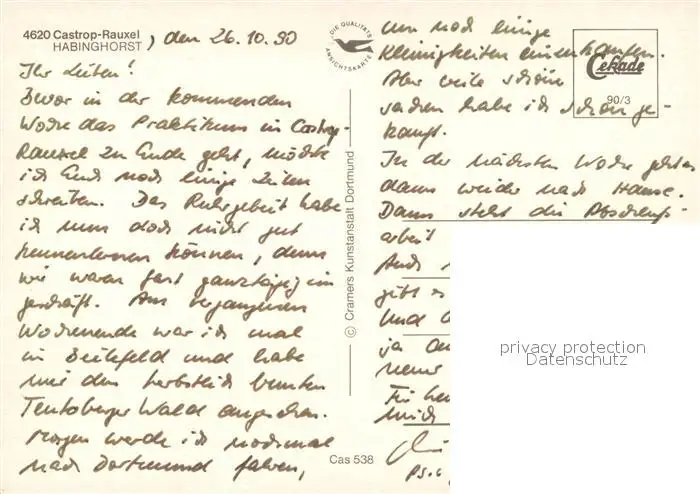 4620 Castrop-Rauxel
HABINGHORST, den 26.10.90
DIE QUALITÄTS
ANSICHTSKARTE
Ihr Lieben!
Bevor in der kommenden
Woche das Praktikum in Castrop-
Rauxel zu Ende geht, möchte
ich Euch noch einige Zeilen
schreiben. Das Ruhrgebiet habe
ich nun doch nicht gut
kennenlernen können, denn
wir waren fast ganztägig im
geschäft. Am vergangenen
Wochenende war ich mal
in Bielefeld und habe
mir den herbstlich bunten
Teutoburger Wald angesehen.
Morgen werde ich nochmal
nach Dortmund fahren,
um noch einige
Kleinigkeiten einkaufen.
Aber viele schöne
sachen habe ich schon ge-
kauft.
In der nächsten Woche gehts
dann wieder nach Hause.
Dann steht die Abschluß-
arbeit
Auch
gibt es
Und
ja
Für
mich
© Cramers Kunstanstalt Dortmund
Cas 538
Cekade
90/3
privacy protection
Datenschutz